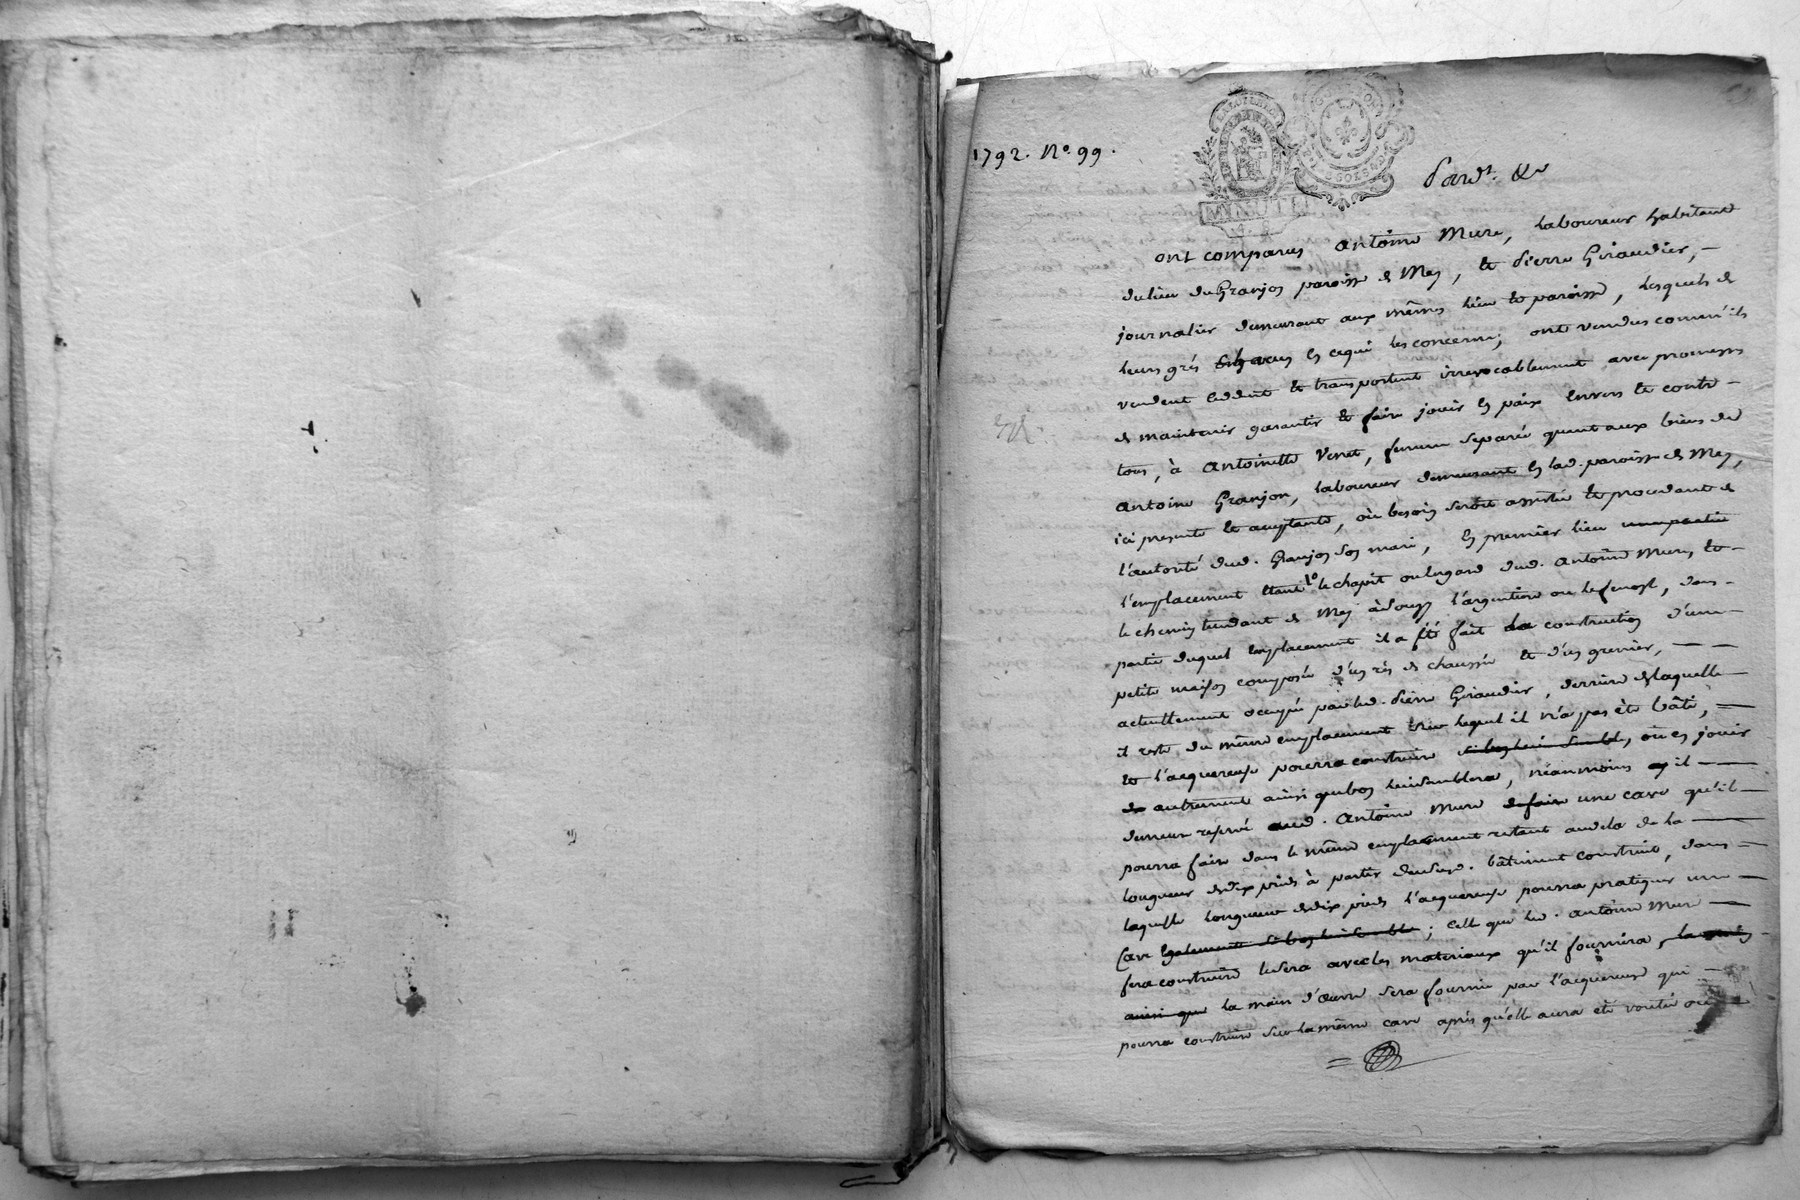 1792. N.º 99.
MINUTE
Pard.t &c
ont comparus Antoine Mure, laboureur habitant
du lieu du Granjon paroisse de Mey, et Pierre Giraudier,
journalier demeurant aux mêmes lieu et paroisse, lesquels de
leurs grés chacun en ce qui les concerne, ont vendus comm'ils
vendent cedent et transportent irrevocablement avec promesse
de maintenir garantir et faire jouir en paix envers et contre
tous, à Antoinette Venet, femme separée quant aux biens de
Antoine Granjon, laboureur demeurant en lad. paroisse de Mey,
ici presente et acceptante, où besoin seroit assistée et procedante de
l'autorité dud. Granjon son mari, en premier lieu une partie
l'emplacement étant le chapit ou hugard dud. Antoine Mure, et
le chemin tendant de Mey à l'argentiere ou , dans
partie duquel emplacement il a été fait la construction d'une
petite maison composée d'un rés de chaussée et d'un grenier,
actuellement occupée par led. Pierre Giraudier, derriere de laquelle
il reste du même emplacement sur lequel il n'a pas été bâti,
et l'acquereuse pourra construire si bon lui semble, ou en jouir
de autrement ainsi que bon lui semblera, néanmoins il
demeure réservé aud. Antoine Mure de faire une cave qu'il
pourra faire dans le même emplacement restant audela de la
longueur de dix pieds à partir dud. bâtiment construit, dans
laquelle longueur de dix pieds l'acquereuse pourra pratiquer une
cave egalement si bon lui semble; celle que led. Antoine Mure
fera construire le sera avec les materiaux qu'il fournira, la main
ainsi que la main d'œuvre sera fournie par l'acquereuse qui
pourra construire sur la même cave après qu'elle aura été voutée ou